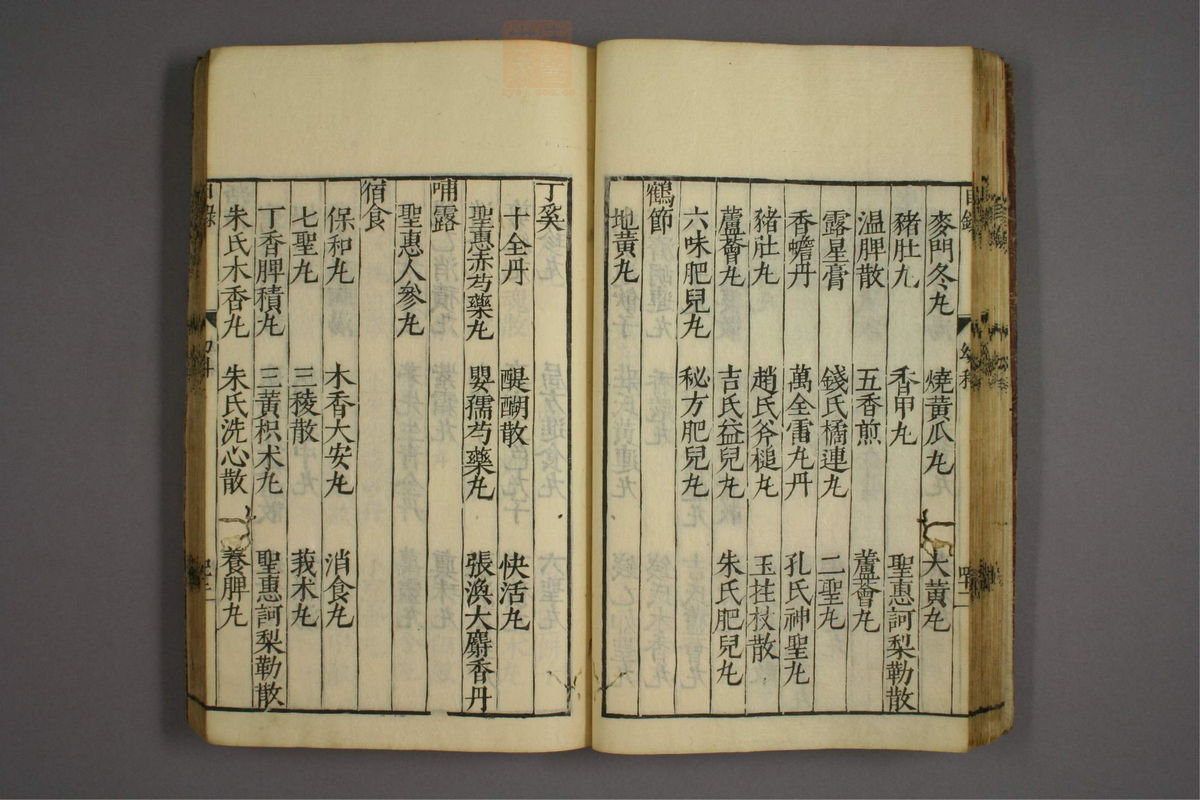 麥門冬丸 燒黃瓜丸 大黃丸
豬肚丸 香甲丸 聖惠訶梨勒散
溫脾散 五香煎 蘆薈丸
露星膏 錢氏橘連丸 二聖丸
香蟾丹 萬全雷丸丹 孔氏神聖丸
豬肚丸 趙氏斧槌丸 玉拄杖散
蘆薈丸 吉氏益兒丸 朱氏肥兒丸
六味肥兒丸 秘方肥兒丸
鶴節
地黃丸
丁奚
十全丹 醍醐散 快活丸
聖惠赤芍藥丸 嬰孺芍藥丸 張渙大麝香丹
哺露
聖惠人參丸
宿食
保和丸 木香大安丸 消食丸
七聖丸 三稜散 莪朮丸
丁香脾積丸 三黃枳朮丸 聖惠訶梨勒散
朱氏木香丸 朱氏洗心散 養脾丸
目錄